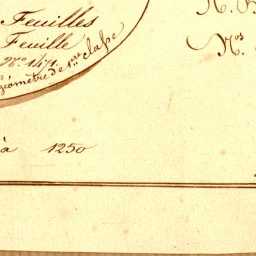 Feuilles
Feuille
N.º 1471.
géomètre de 1.ère classe
N.
N.os
à 1250